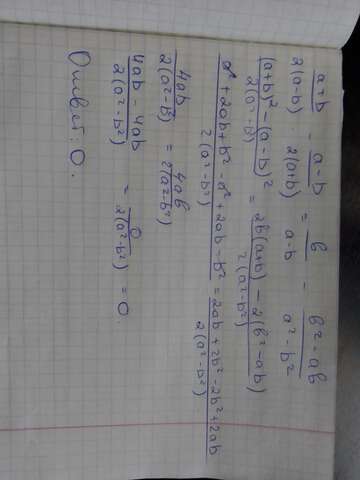 (a+b)/(2(a-b)) - (a-b)/(2(a+b)) = b/(a-b) - (b²-ab)/(a²-b²)
((a+b)²-(a-b)²)/(2(a²-b²)) = (2b(a+b) - 2(b²-ab))/(2(a²-b²))
(a²+2ab+b²-a²+2ab-b²)/(2(a²-b²)) = (2ab+2b²-2b²+2ab)/(2(a²-b²))
4ab/(2(a²-b²)) = 4ab/(2(a²-b²))
(4ab-4ab)/(2(a²-b²)) = 0/(2(a²-b²)) = 0.
Ответ: 0.